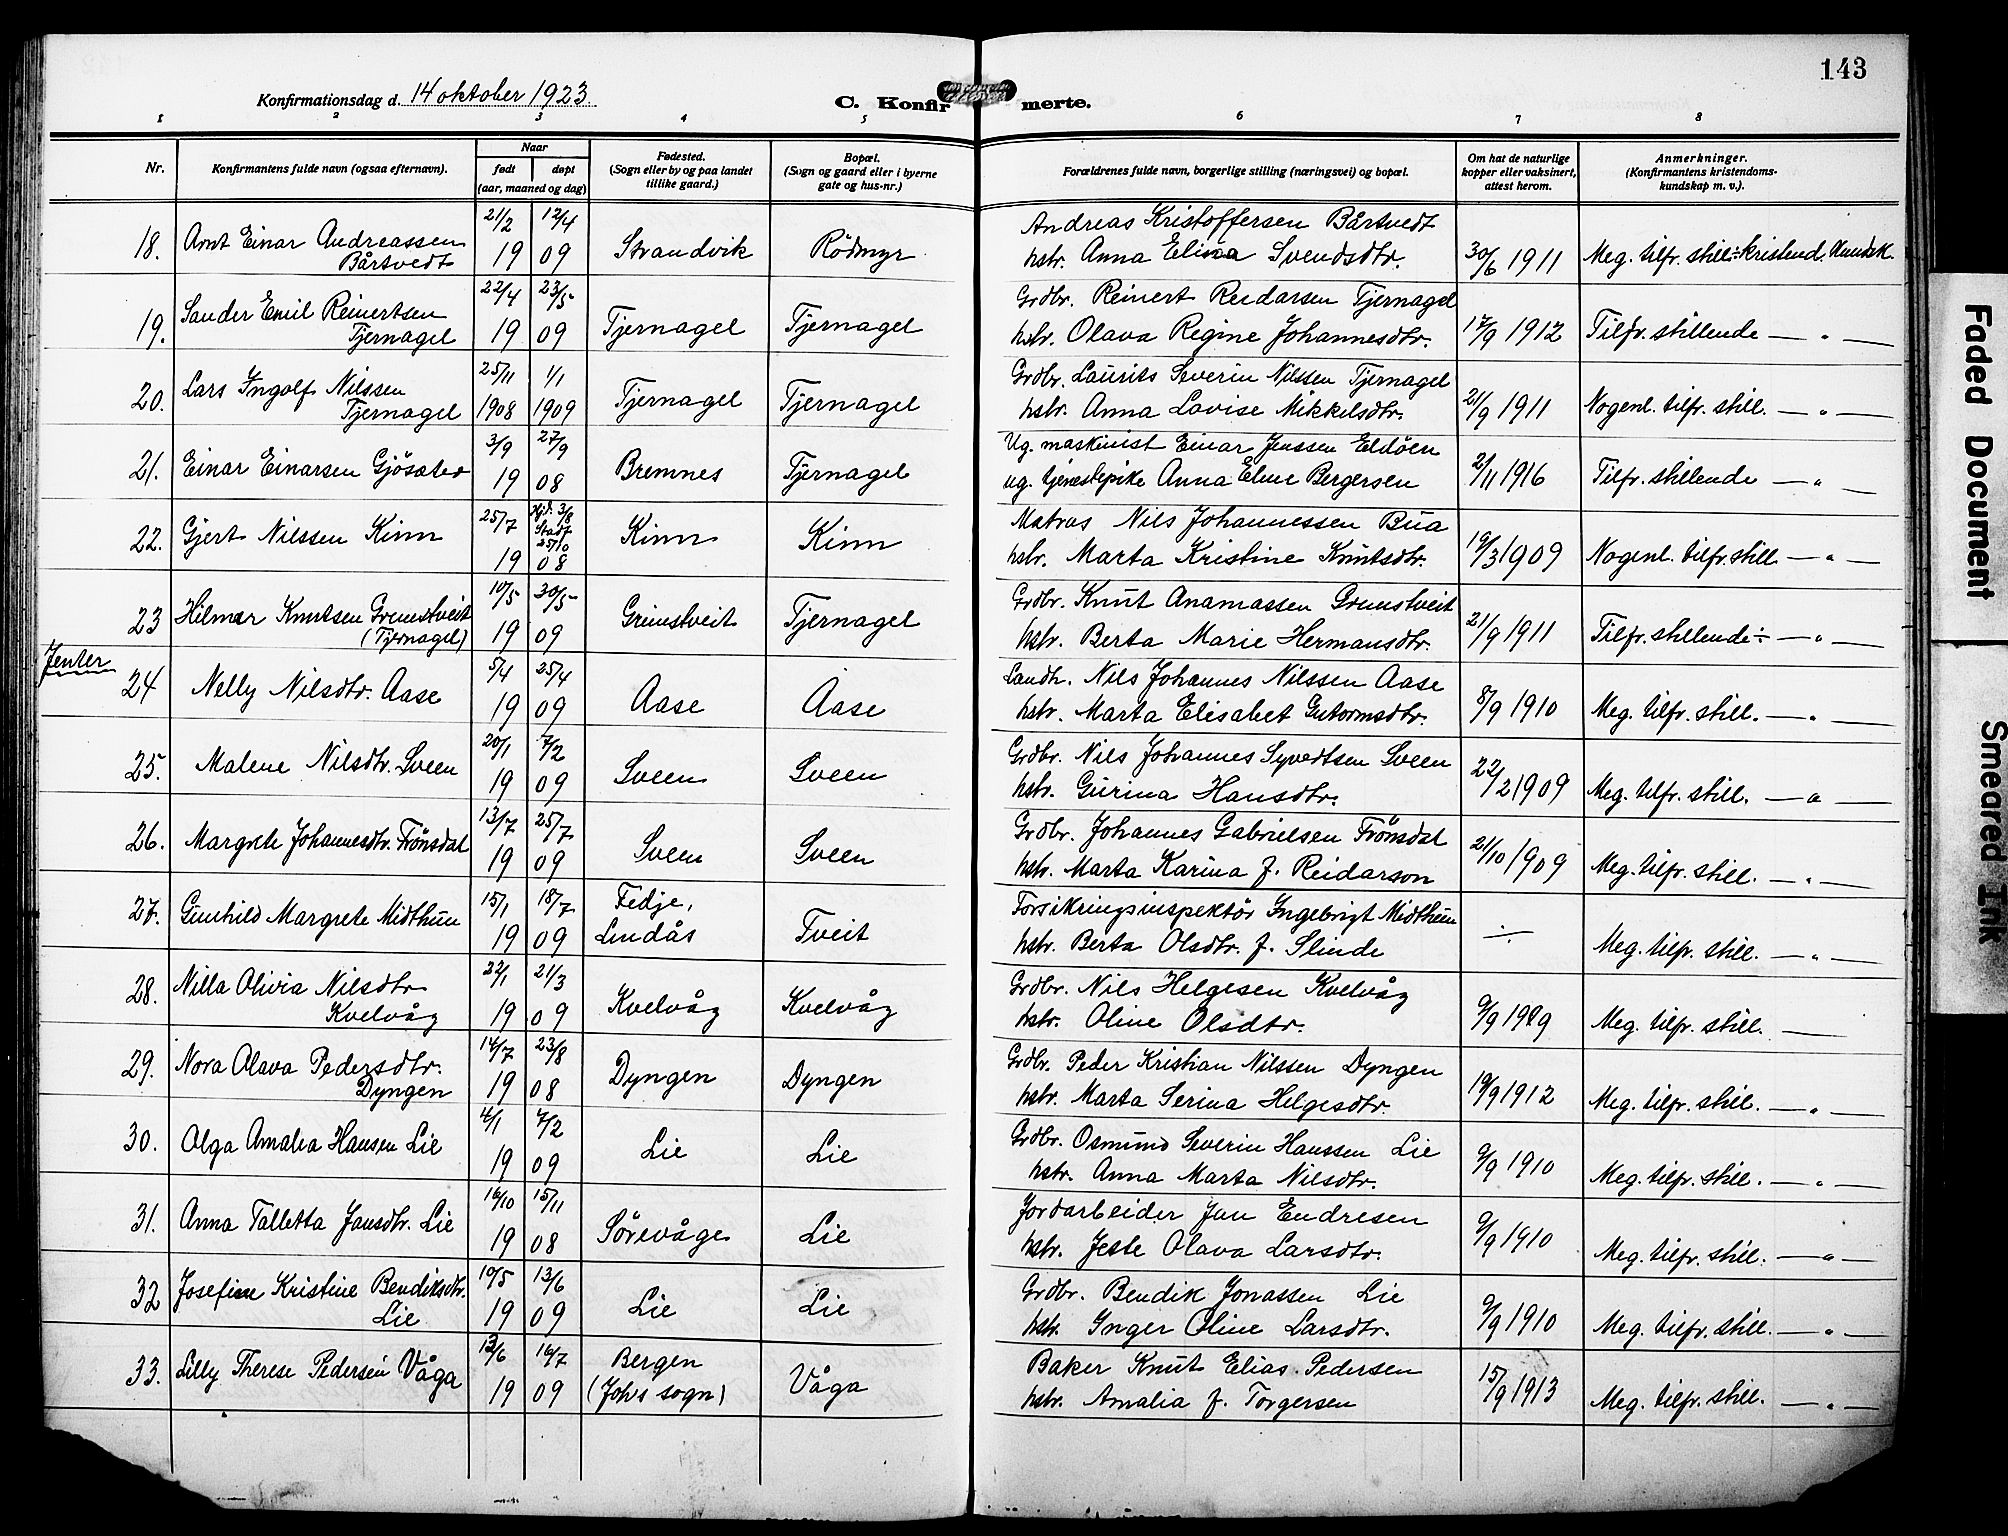 143
Konfirmationsdag d. 14 oktober 1923.
C. Konfirmerte.
1 2 3 4 5 6 7 8
Nr.
Konfirmantens fulde navn (ogsaa efternavn).
Naar
født døpt
(aar, maaned og dag)
Fødested.
(Sogn eller by og paa landet
tillike gaard.)
Bopæl.
(Sogn og gaard eller i byerne
gate og hus-nr.)
Forældrenes fulde navn, borgerlige stilling (næringsvei) og bopæl.
Om hat de naturlige
kopper eller vaksinert,
attest herom.
Anmerkninger.
(Konfirmantens kristendoms-
kundskap m. v.).
18. Arnt Einar Andreassen Bårtvedt 21/2 1909 12/4 Strandvik Rödmyr
Andreas Kristoffersen Bårtvedt
hstr. Anna Elina Svendsdtr. 30/6 1911 Meg. tilfr. still÷kristend. kundsk.
19. Sander Emil Reinertsen Tjernagel 22/4 1909 23/5 Tjernagel Tjernagel
Grdbr. Reinert Reidarsen Tjernagel
hstr. Olava Regine Johannesdtr. 17/9 1912 Tilfr. stillende — " —
20. Lars Ingolf Nilssen Tjernagel 25/11 1908 1/1 1909 Tjernagel Tjernagel
Grdbr. Laurits Severin Nilssen Tjernagel
hstr. Anna Lovise Mikkelsdtr. 21/9 1911 Nogenl. tilfr. still. — " —
21. Einar Einarsen Gjösæter 3/9 1908 27/9 Bremnes Tjernagel
Ug. maskinist Einar Jenssen Eldöen
ug. tjenestepike Anna Elne Bergersen 2/11 1916 Tilfr. stillende — " —
22. Gjert Nilssen Kinn 25/7 1908 Hjd. 3/8 Stadf. 25/10 Kinn Kinn
Matros Nils Johannessen Bua
hstr. Marta Kristine Knutsdtr. 19/3 1909 Nogenl. tilfr. still — " —
23 Hilmar Knutsen Grimstveit (Tjernagel) 10/5 1909 30/5 Grimstveit Tjernagel
Grdbr. Knut Anamassen Grimstveit
hstr. Berta Marie Hermansdtr. 21/9 1911 Tilfr. stillende ÷ — " —
Jenter
24 Nelly Nilsdtr. Aase 5/4 1909 25/4 Aase Aase
Landh. Nils Johannes Nilssen Aase
hstr. Marta Elisabet Gutormsdtr. 8/9 1910 Meg. tilfr. still. — " —
25. Malene Nilsdtr. Sveen 20/1 1909 7/2 Sveen Sveen
Grdbr. Nils Johannes Syvertsen Sveen
hstr. Gurina Hansdtr. 22/2 1909 Meg. tilfr. still. — " —
26. Margrete Johannesdtr. Frönsdal 13/7 1909 25/7 Sveen Sveen
Grdbr. Johannes Gabrielsen Frönsdal
hstr. Marta Karina f. Reidarson 21/10 1909 Meg. tilfr. still. — " —
27. Gunhild Margrete Midthun 15/1 1909 18/7 Fedje, Lindås Tveit
Forsikringsinspektör Ingebrigt Midthun
hstr. Berta Olsdtr. f. Slinde ÷ Meg. tilfr. still. — " —
28. Nilla Olivia Nilsdtr Kvelvåg 22/1 1909 21/3 Kvelvåg Kvelvåg
Grdbr. Nils Helgesen Kvelvåg
hstr. Oline Olsdtr. 9/9 1909 Meg. tilfr. still. —
29. Nora Olava Pedersdtr. Dyngen 14/7 1908 23/8 Dyngen Dyngen
Grdbr. Peder Kristian Nilssen Dyngen
hstr. Marta Serina Helgesdtr. 19/9 1912 Meg. tilfr. still. — " —
30. Olga Amalia Hansen Lie 4/1 1909 7/2 Lie Lie
Grdbr. Osmund Severin Hanssen Lie
hstr. Anna Marta Nilsdtr. 9/9 1910 Meg. tilfr. still. — " —
31. Anna Talletta Jansdtr. Lie 16/10 1908 15/11 Sörevåge Lie
Jordarbeider Jan Endresen
hstr. Jette Olava Larsdtr. 9/9 1910 Meg. tilfr. still. — " —
32 Josefine Kristine Bendiksdtr. Lie 10/5 1909 13/6 Lie Lie
Grdbr. Bendik Jonassen Lie
hstr. Inger Oline Larsdtr. 9/9 1910 Meg. tilfr. still. — " —
33. Lilly Therese Pedersen Våga 12/6 1909 16/7 Bergen (Johs sogn) Våga
Baker Knut Elias Pedersen
hstr. Amalia f. Torgersen 15/9 1913 Meg. tilfr. still. — " —
Faded Document
Smeared Ink